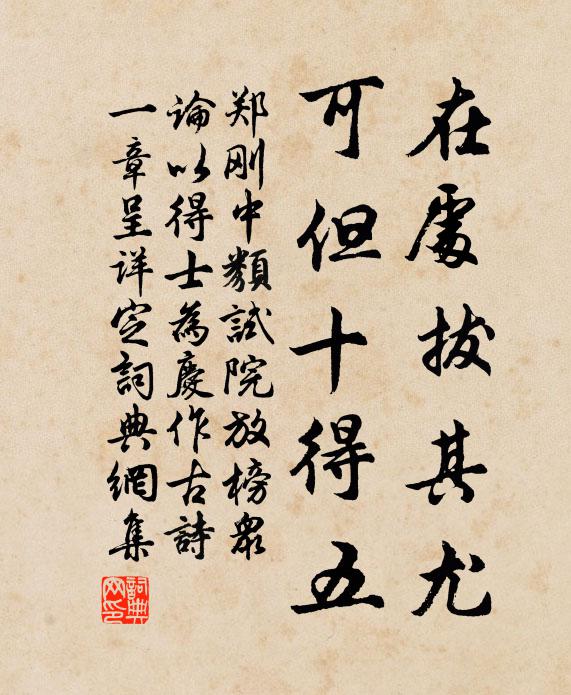 在處拔其尤
可但十得五
郑刚中類試院放榜眾
論以得士為慶作古詩
一章呈详定詞典網集
詞典網印